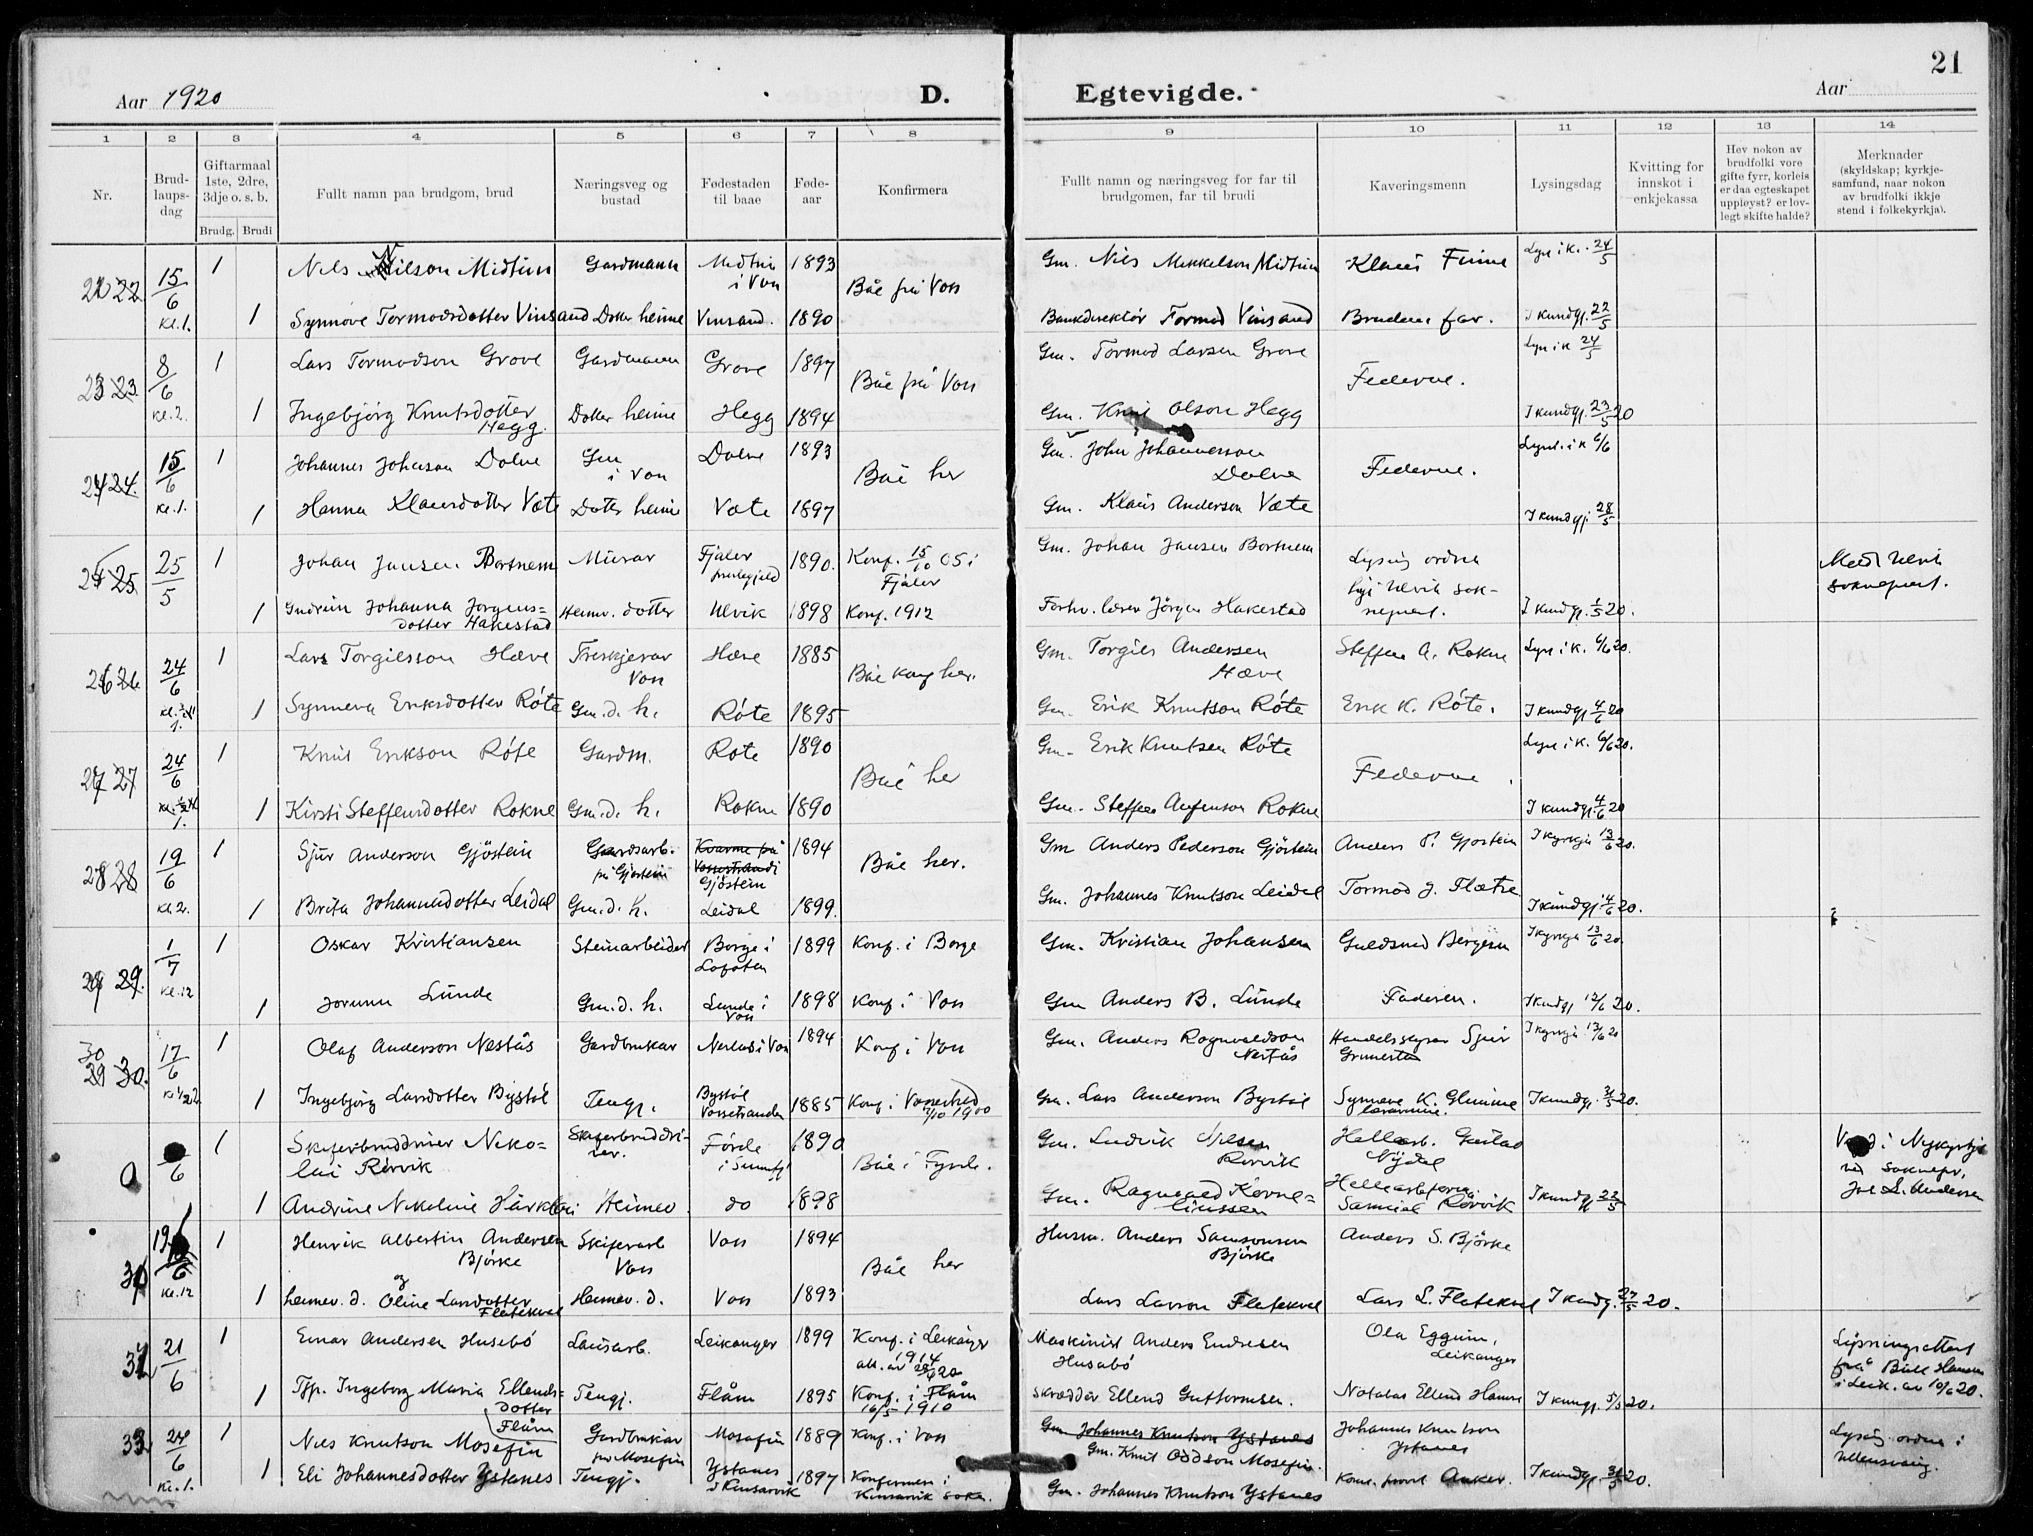 21
Aar 1920
D.
Egtevigde.
Aar
1 2 3 4 5 6 7 8 9 10 11 12 13 14
Nr.
Brud-
laups-
dag
Giftarmaal
1ste, 2dre,
3dje o. s. b.
Brudg. Brudi
Fullt namn paa brudgom, brud
Næringsveg og
bustad
Fødestaden
til baae
Føde-
aar
Konfirmera
Fullt namn og næringsveg for far til
brudgomen, far til brudi
Kaveringsmenn
Lysingsdag
Kvitting for
innskot i
enkjekassa
Hev nokon av
brudfolki vore
gifte fyrr, korleis
er daa egteskapet
uppløyst? er lov-
legt skifte halde?
Merknader
(skyldskap; kyrkje-
samfund, naar nokon
av brudfolki ikkje
stend i folkekyrkja).
22 15/6 1 Nils Nilson Midtun Gardmann Midtun i Voss 1893 Båe frå Voss Gm. Nils Mikkelson Midtun Klaus Finne Lyst i k. 24/5
Kl. 1. 1 Synnøve Tormodsdotter Vinsand Dotter heime Vinsand. 1890 Bankdirektør Tormod Vinsand Brudens far. I kundgj. 22/5
23 8/6 1 Lars Tormodson Grove Gardmann Grove 1897 Båe frå Voss Gm. Tormod Larsen Grove Federne. Lyst i k 24/5
Kl. 2. 1 Ingebjörg Knutsdotter Hegg. Dotter heime Hegg 1894 Gm. Knut Olson Hegg I kundgj. 23/5 20
24. 15/6 1 Johannes Johnson Dolve Gm i Voss Dolve 1893 Båe her Gm. John Johannesson Dolve Federne. Lyst i k 6/6
Kl. 1. 1 Hanna Klausdotter Væte Dotter heime Væte 1897 Gm. Klaus Anderson Væte I kundgj. 28/5
25 25/5 1 Johan Jansen Borsnem Murar Fjaler prestegjeld 1890. Konf. 15/10 05 i Fjaler Gm. Johan Jansen Borsnem Lysing ordna hjå Ulvik sok-neprest. Meld Ulvik sokneprest.
1 Gudrun Johanna Jørgens-dotter Hakestad Heimev. dotter Ulvik 1898 Konf. 1912 Forhv. lærer Jörgen Hakestad I kundgj. 1/5 20.
26 24/6 1 Lars Torgilsson Hæve Treskjerar Voss Hæve 1885 Båe konf her. Gm. Torgils Andersen Hæve Steffen A. Rokne Lyst i k. 6/6 20.
1 Synneva Eriksdotter Röte Gm. d. h. Röte 1895 Gm. Erik Knutson Röte Erik K. Röte. I kundgj. 4/6 20
27 24/6 1 Knut Erikson Röte Gardm. Röte 1890 Båe her Gm. Erik Knutsen Röte Federne. Lyst i k. 6/6 20.
1 Kirsti Steffensdotter Rokne Gm. d. h. Rokne 1890 Gm. Steffen Rokne I kundgj. 4/6 20
28 19/6 1 Sjur Anderson Gjöstein Gardsarb. på Gjöstein Kvarme på Vossestrandi Gjöstein 1894 Båe her. Gm Anders Pederson Gjöstein Anders P. Gjöstein I kyrkja 13/6 20.
Kl. 2. 1 Brita Johannesdotter Leidal Gm. d. h. Leidal 1899. Gm. Johannes Knutson Leidal Tormod J. Flætre I kundgj. 14/6 20.
29. 1/7 1 Oskar Kristiansen Steinarbeider Borge i Lofoten 1899 Konf. i Borge Gm. Kristian Johansen Guldsmed Bergesen I kyrkja 13/6 20.
Kl. 12 1 Jorunn Lunde Gm. d. h. Lunde i Voss 1898 Konf. i Voss Gm Anders B. Lunde Faderen. I kundgj. 12/6 20.
30. 17/6 1 Olaf Anderson Nestås Gardbrukar Nestås i Voss 1894 Konf i Voss Gm. Anders Ragnvaldson Nestås Handelsstyrar Sjur I kyrkja 13/6 20
1 Ingebjörg Larsdotter Bystöl Tengj. Bystöl Vossestranden 1885 Konf. i Vossestrand 2/10 1900 Gm. Lars Anderson Bystöl Synnøve K. Glimme lærarinne. I kundgj. 31/5 20.
0 /6 1 Skiferbruddrier Niko-lai Rörvik Skiferbruddri-ver. Förde i Sunnfj 1890 Gm. Ludvik Nilsen Rørvik Hellearb. Gustav Nydal ved soknepr.
1 Andrine Nikoline Heimev do 1898 Gm. Ragnvald Korne-liussen Samuel Rörvik I kundgj 22/5
12/6 1 Henrik Albertin Andersen Björke Skiferarb Voss Voss 1894 Båe her Husm. Anders Samsonsen Björke Anders S. Björke
Kl. 12 1 heimev. d. og Oline Larsdotter Flatekval Heimev. d. Voss 1893 Lars Larson Flatekval Lars L. Flatekval I kundgj. 27/5 20.
32 21/6 1 Einar Andersen Husebö Lausarb. Leikanger 1899 Konf. i Leikanger 1914 Maskinist Anders Endresen Husabö Ola Eggum, Leikanger Lysningsattest frå
1 Tjp. Ingeborg Maria Ellends-dotter Flåm Tengj. Flåm 1895 Konf. i Flåm 16/5 1910 Skreddar Ellend Guttormsen. I kungj. 5/5 20.
33 24/6 1 Nils Knutson Mosafin Gardbrukar på Mosafin Mosafin 1889 Konf. i Voss Gm Johannes Knutson Ystanes Gm. Knut Oddson Mosafin. Johannes Knutson Ystanes Lysing ordna i Ullensvang.
Kl. 1. 1 Eli Johannesdotter Ystanes Tengj. Ystanes i Kinsarvik 1897 Konfirmera i Kinsarvik sokn. Gm. Johannes Knutson Ystanes Anker. I kundgj. 31/5 20.